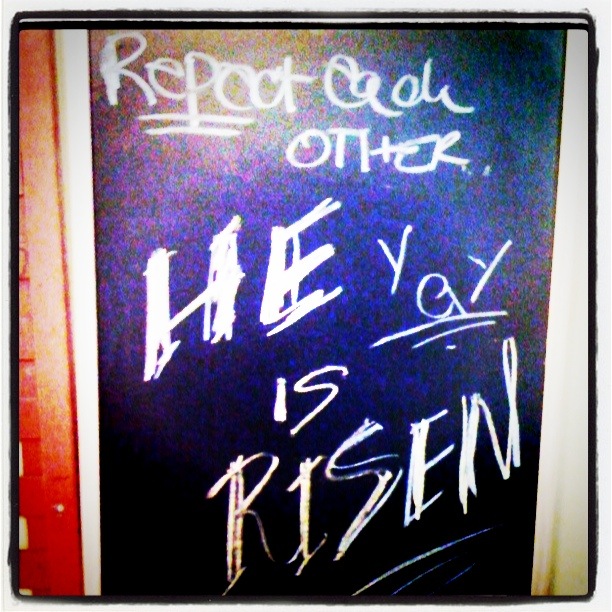 Repect each
OTHER..
HE yay
is
RISEN